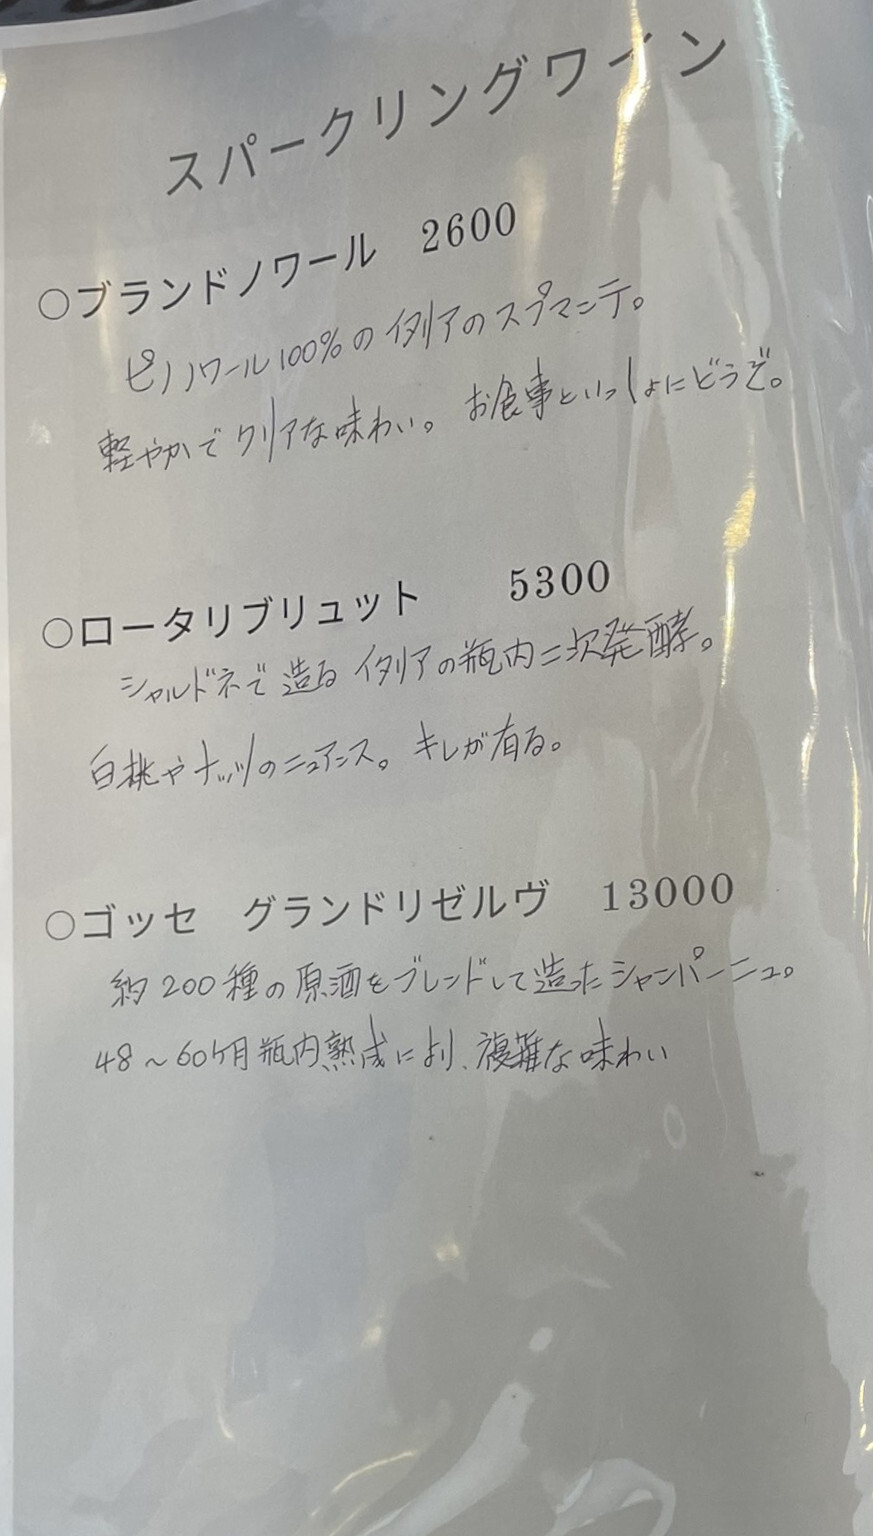 スパークリングワイン
○ブランドノワール 2600
ピノノワール100%のイタリアのスプマンテ。
軽やかでクリアな味わい。お食事といっしょにどうぞ。
○ロータリブリュット 5300
シャルドネで造るイタリアの瓶内二次発酵。
白桃やナッツのニュアンス。キレが有る。
○ゴッセ グランドリゼルヴ 13000
約200種の原酒をブレンドして造ったシャンパーニュ。
48～60ヶ月瓶内熟成により、複雑な味わい